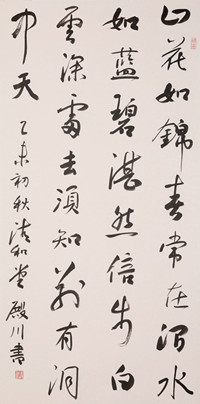 山花如錦春常在澗水
如藍碧湛然信步白
雲深處去須知別有洞
中天 乙未初秋清和堂殿川書